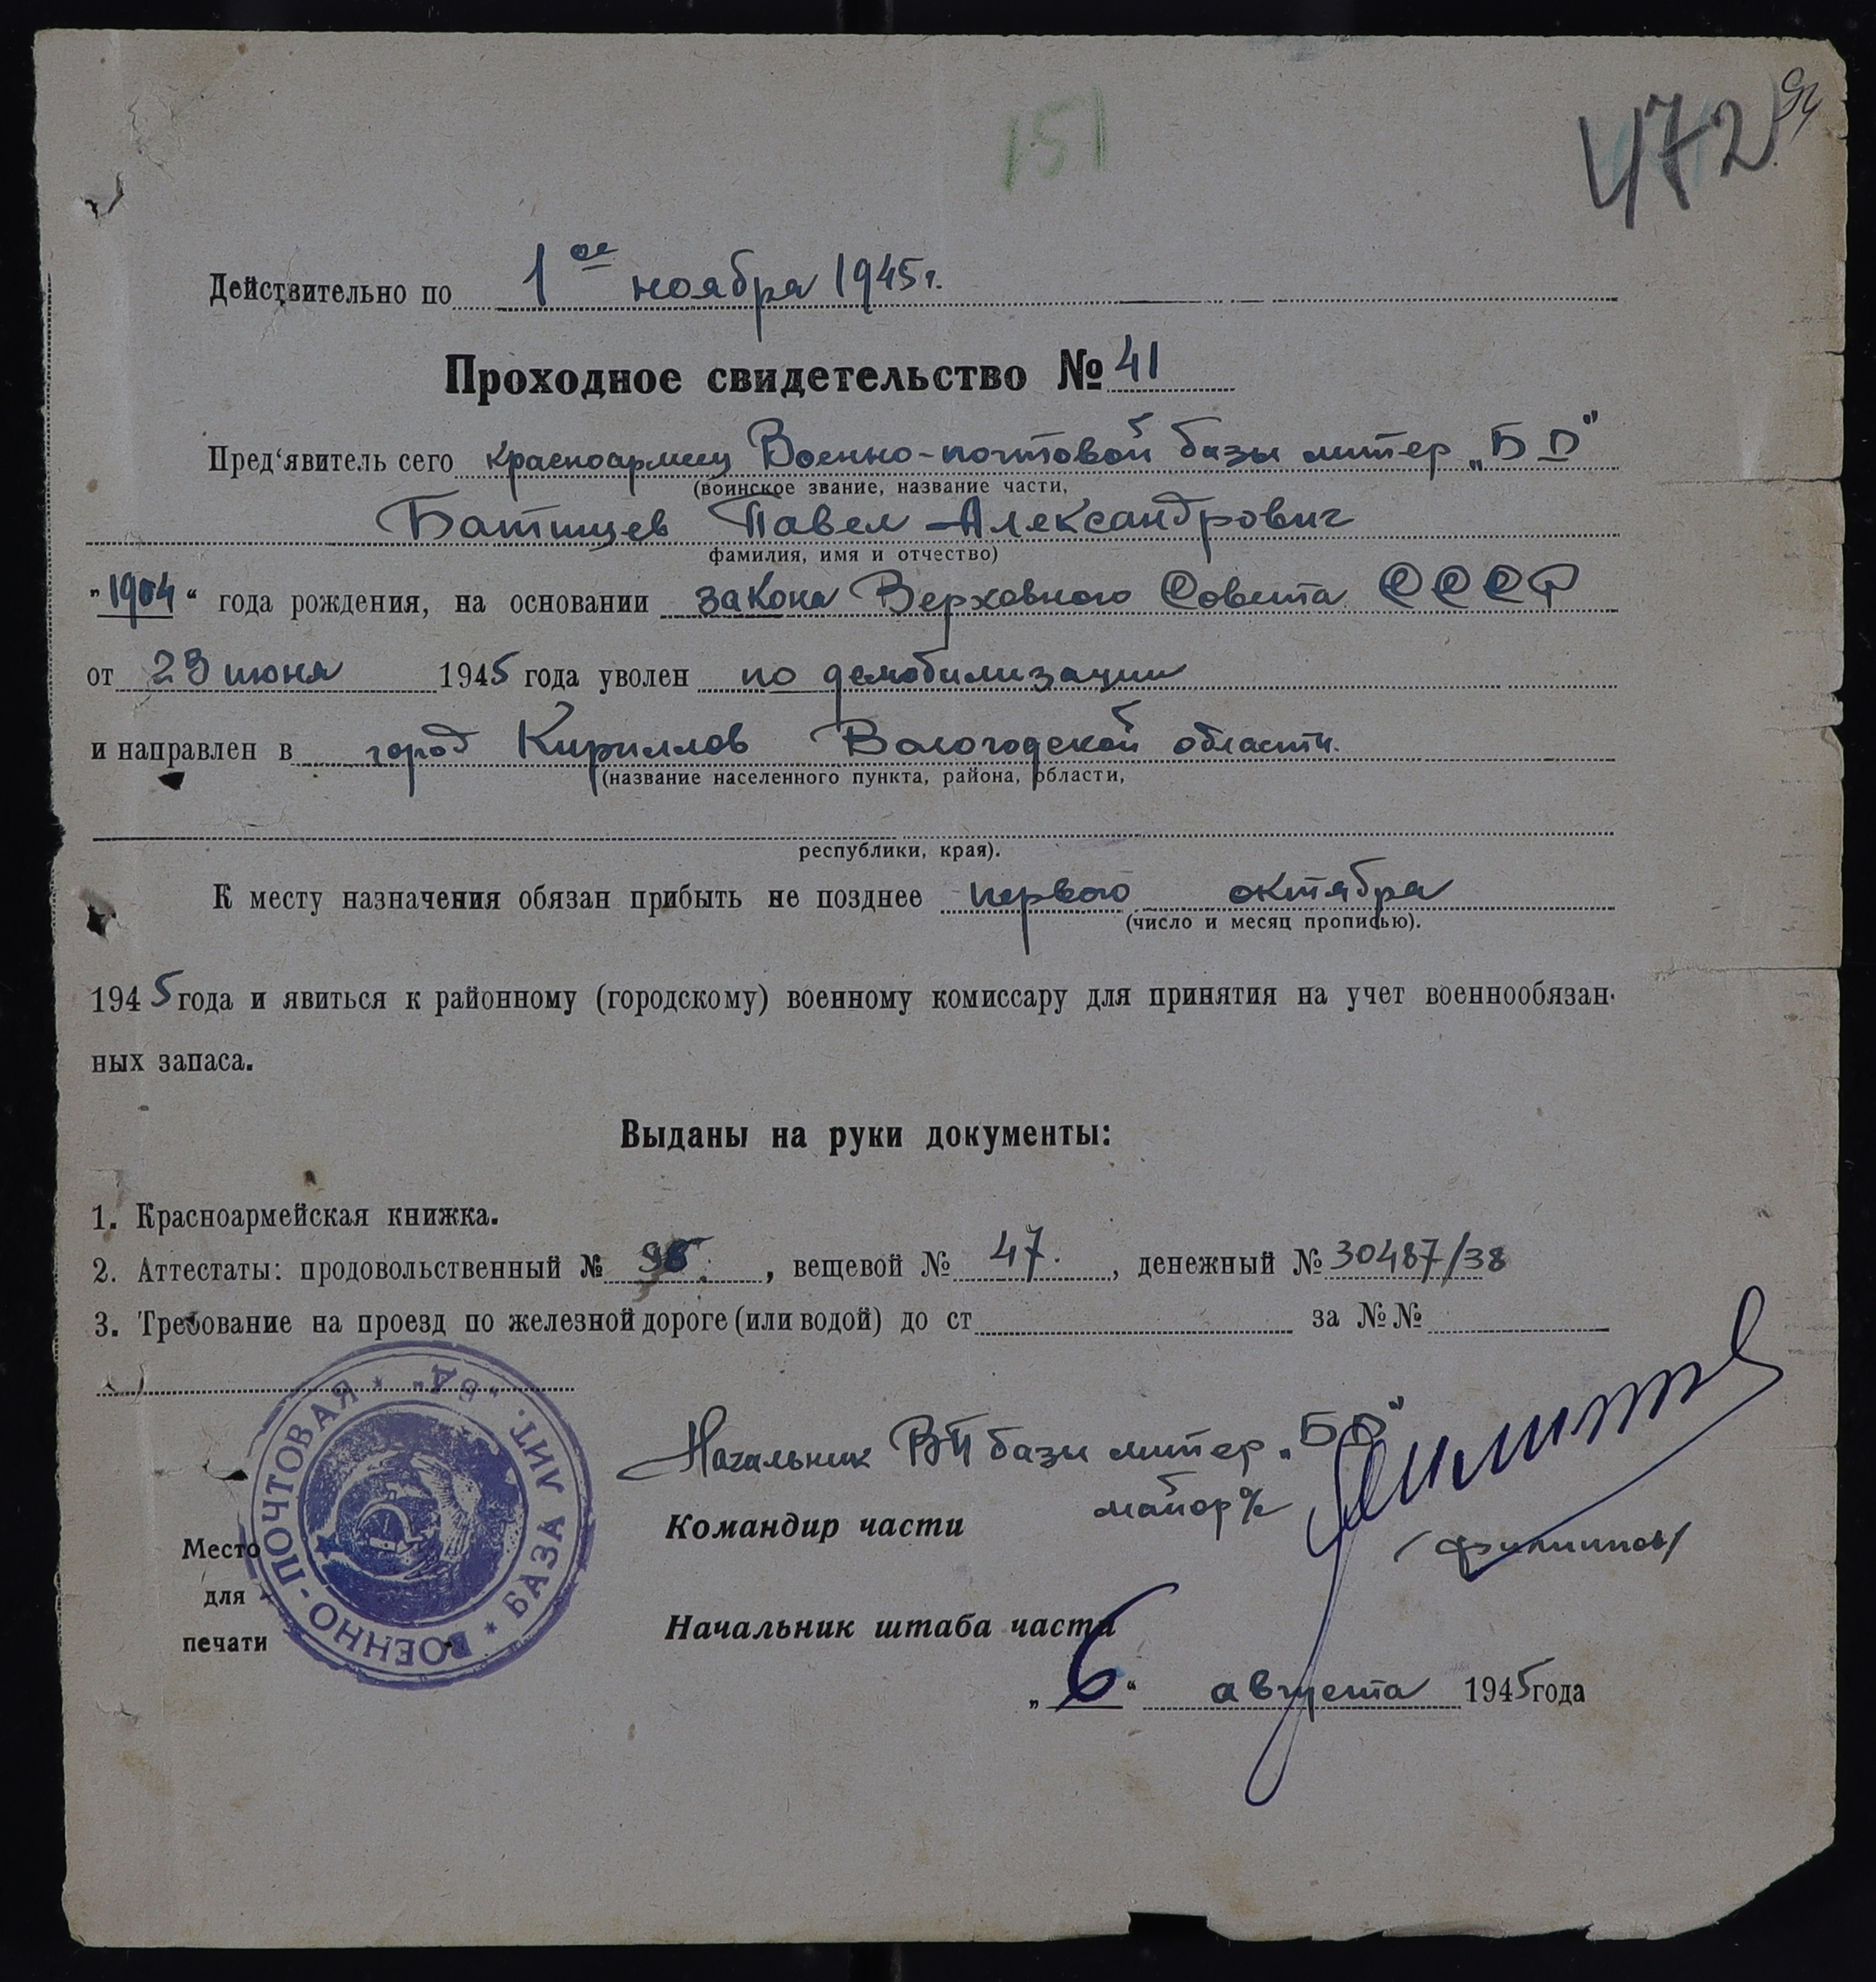 151
472
94
Действительно по 1ое ноября 1945г.
Проходное свидетельство № 41
Пред'явитель сего красноармеец Военно-почтовой базы литер „БД"
(воинское звание, название части,
Батищев Павел Александрович
фамилия, имя и отчество)
„1904“ года рождения, на основании закона Верховного Совета СССР
от 23 июня 1945 года уволен по демобилизации
и направлен в город Кириллов Вологодской области.
(название населенного пункта, района, области,
республики, края).
К месту назначения обязан прибыть не позднее первого октября
(число и месяц прописью).
1945 года и явиться к районному (городскому) военному комиссару для принятия на учет военнообязан-
ных запаса.
Выданы на руки документы:
1. Красноармейская книжка.
2. Аттестаты: продовольственный № , вещевой № 47. , денежный № 30487/38
3. Требование на проезд по железной дороге (или водой) до ст за №№
Начальник ВП базы литер „БД"
майор
Командир части
/Филиппов/
Место
для
печати
ВОЕННО-ПОЧТОВАЯ * БАЗА ЛИТ. „БД" *
Начальник штаба части
„6“ августа 1945 года